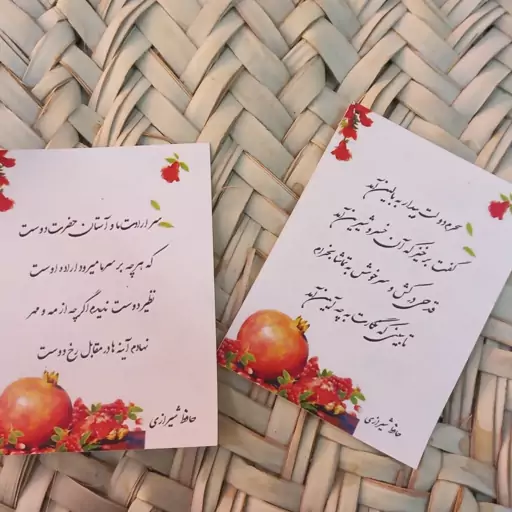 سر ارادت ما و آستان حضرت دوست
که هر چه بر سر ما میرود اراده اوست
نظیر دوست ندیدم اگر چه از مه و مهر
نهادم آینه ها در مقابل رخ دوست
حافظ شیرازی
سحرم دولت بیدار به بالین آمد
گفت برخیز که آن خسرو شیرین آمد
قدحی درکش و سرخوش به تماشا بخرام
تا ببینی که نگارت به چه آیین آمد
حافظ شیرازی